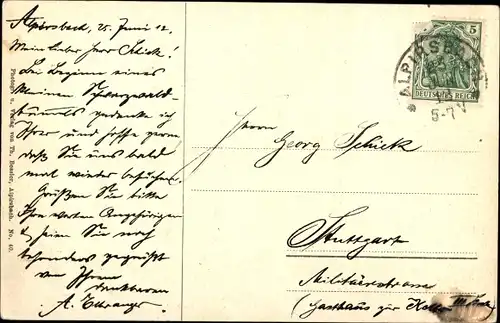 Alpirsbach, 25. Juni 12.
Mein lieber Herr Schick!
Bei Beginn eines
kleinen Schwarzwald-
bummels gedenke ich
Ihrer und hoffe gern
daß Sie uns bald
mal wieder besuchen.
Grüßen Sie bitte
Ihre werten Angehörigen
& seien Sie noch
besonders gegrüßt
von Ihrem
dankbaren
A.
Photogr. u. Verlag von Th. Roessler, Alpirsbach. No. 40.
5
DEUTSCHES REICH
ALPIRSBACH
5-7 V
Herrn
Georg Schick
Stuttgart
Militärstrasse
(Gasthaus zur